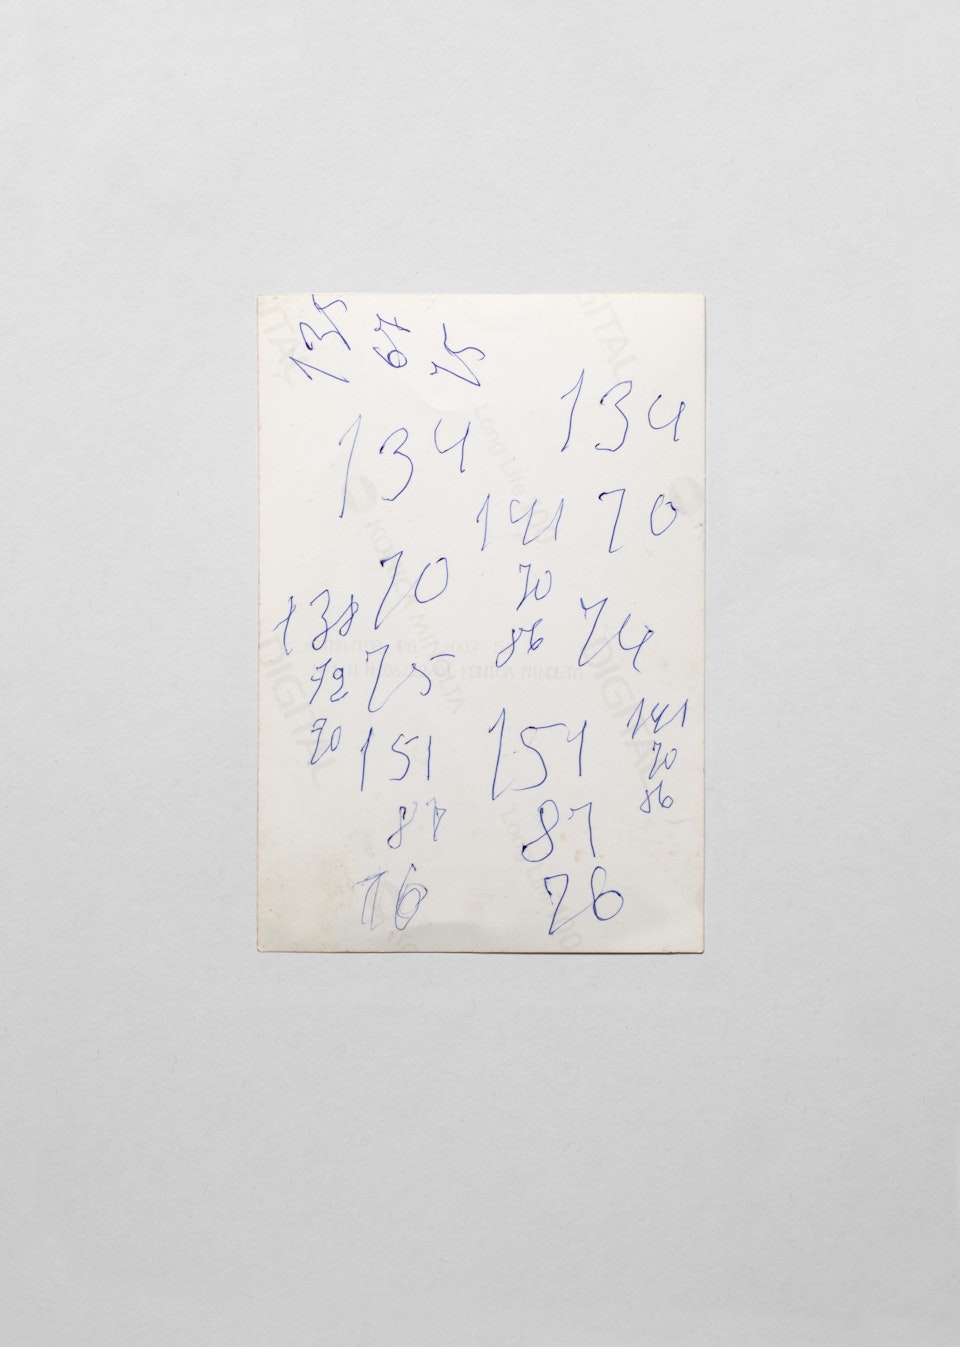 135 67 75
134
134
141
70
70
70
138
86
74
72
75
141
70
151
151
70
86
87
87
76
76
DIGITAL
DIGITAL
DIGITAL
KONICA MINOLTA
Long Life 100